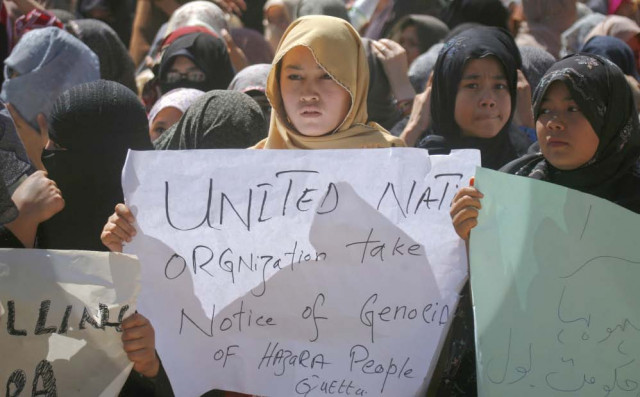 LLING
RA
UNITED NATI
ORGNization take
Notice of Genocid
OF HAZARA People
Quetta
حکومت بول